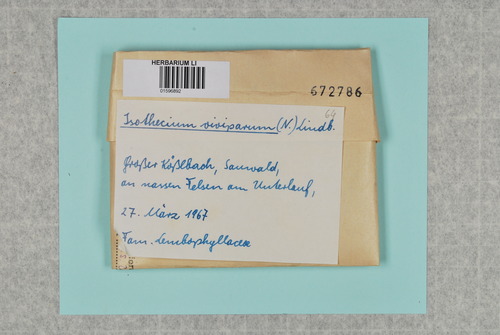 HERBARIUM LI
01595892
672786
64
Isothecium viviparum (N.) Lindb.
Großer Kößlbach, Sauwald,
an nassen Felsen am Unterlauf,
27. März 1967
Fam. Lembophyllaceae